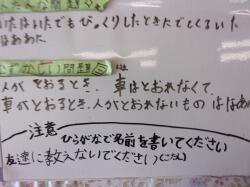 たんな問題
いたはいたでもびっくりしたときにでてくるいた
はなあに
むずかしい問題
人がとおるとき、車はとおれなくて、
車がとおるとき、人がとおれないものはなあに
注意
ひらがなで名前を書いてください
友達に教えないでください